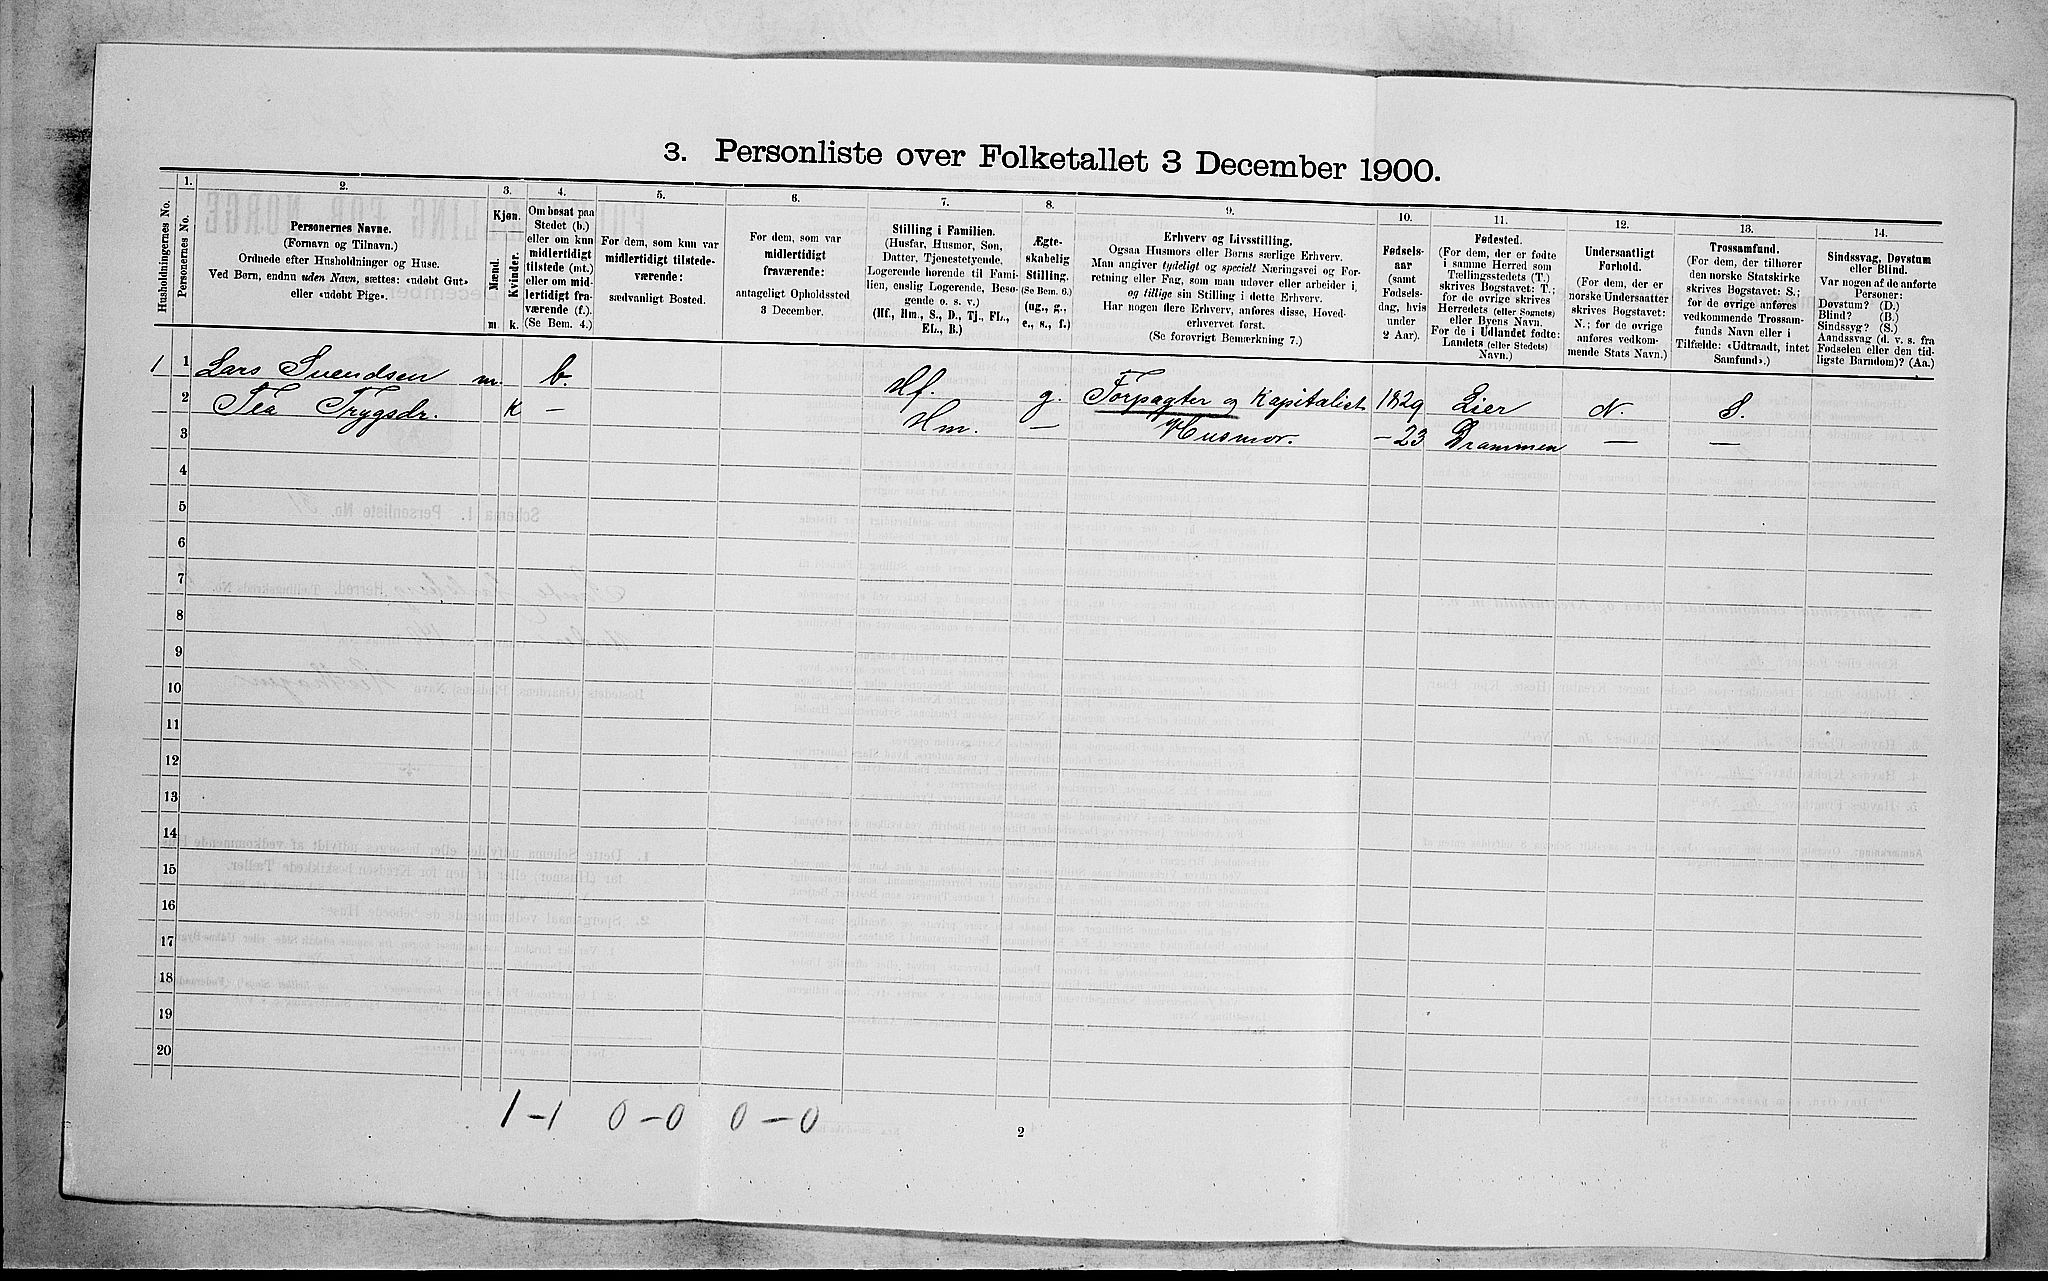 3. Personliste over Folketallet 3 December 1900.
Husholdningernes No.
1.
Personernes No.
2.
Personernes Navne.
(Fornavn og Tilnavn.)
Ordnede efter Husholdninger og Huse.
Ved Børn, endnu uden Navn, sættes: «udøbt Gut»
eller «udøbt Pige».
3.
Kjøn.
Mænd.
Kvinder.
m. k.
4.
Om bosat paa
Stedet (b.)
eller om kun
midlertidigt
tilstede (mt.)
eller om mid-
lertidigt fra-
værende (f.).
(Se Bem. 4.)
5.
For dem, som kun var
midlertidigt tilstede-
værende:
sædvanligt Bosted.
6.
For dem, som var
midlertidigt
fraværende:
antageligt Opholdssted
3 December.
7.
Stilling i Familien.
(Husfar, Husmor, Søn,
Datter, Tjenestetyende,
Logerende hørende til Fami-
lien, enslig Logerende, Besø-
gende o. s. v.)
(Hf., Hm., S., D., Tj., FL.,
EL., B.)
8.
Ægte-
skabelig
Stilling.
(Se Bem. 6.)
(ug., g.,
e., s., f.)
9.
Erhverv og Livsstilling.
Ogsaa Husmors eller Børns særlige Erhverv.
Man angiver tydeligt og specielt Næringsvei og For-
retning eller Fag, som man udøver eller arbeider i,
og tillige sin Stilling i dette Erhverv.
Har nogen flere Erhverv, anføres disse, Hoved-
erhvervet først.
(Se forøvrigt Bemærkning 7.)
10.
Fødsels-
aar
(samt
Fødsels-
dag, hvis
under
2 Aar).
11.
Fødested.
(For dem, der er fødte
i samme Herred som
Tællingsstedets (T.)
skrives Bogstavet: T.;
for de øvrige skrives
Herredets (eller Sognets)
eller Byens Navn.
For de i Udlandet fødte:
Landets (eller Stedets)
Navn.)
12.
Undersaatligt
Forhold.
(For dem, der er
norske Undersaatter
skrives Bogstavet:
N.; for de øvrige
anføres vedkom-
mende Stats Navn.)
13.
Trossamfund.
(For dem, der tilhører
den norske Statskirke
skrives Bogstavet: S.;
for de øvrige anføres
vedkommende Trossam-
funds Navn eller i
Tilfælde: «Udtraadt, intet
Samfund».)
14.
Sindssvag, Døvstum
eller Blind.
Var nogen af de anførte
Personer:
Døvstum? (D.)
Blind? (B.)
Sindssyg? (S.)
Aandssvag (d. v. s. fra
Fødselen eller den tid-
ligste Barndom)? (Aa.)
1 1 Lars Svendsen m. b. Hf. g. Forpagter og Kapitalist 1829 Lier N. S.
2 Tea Trygsdr. K — Hm. — Husmor. -23 Drammen — —
3
4
5
6
7
8
9
10
11
12
13
14
15
16
17
18
19
20
1-1 0-0 0-0
2